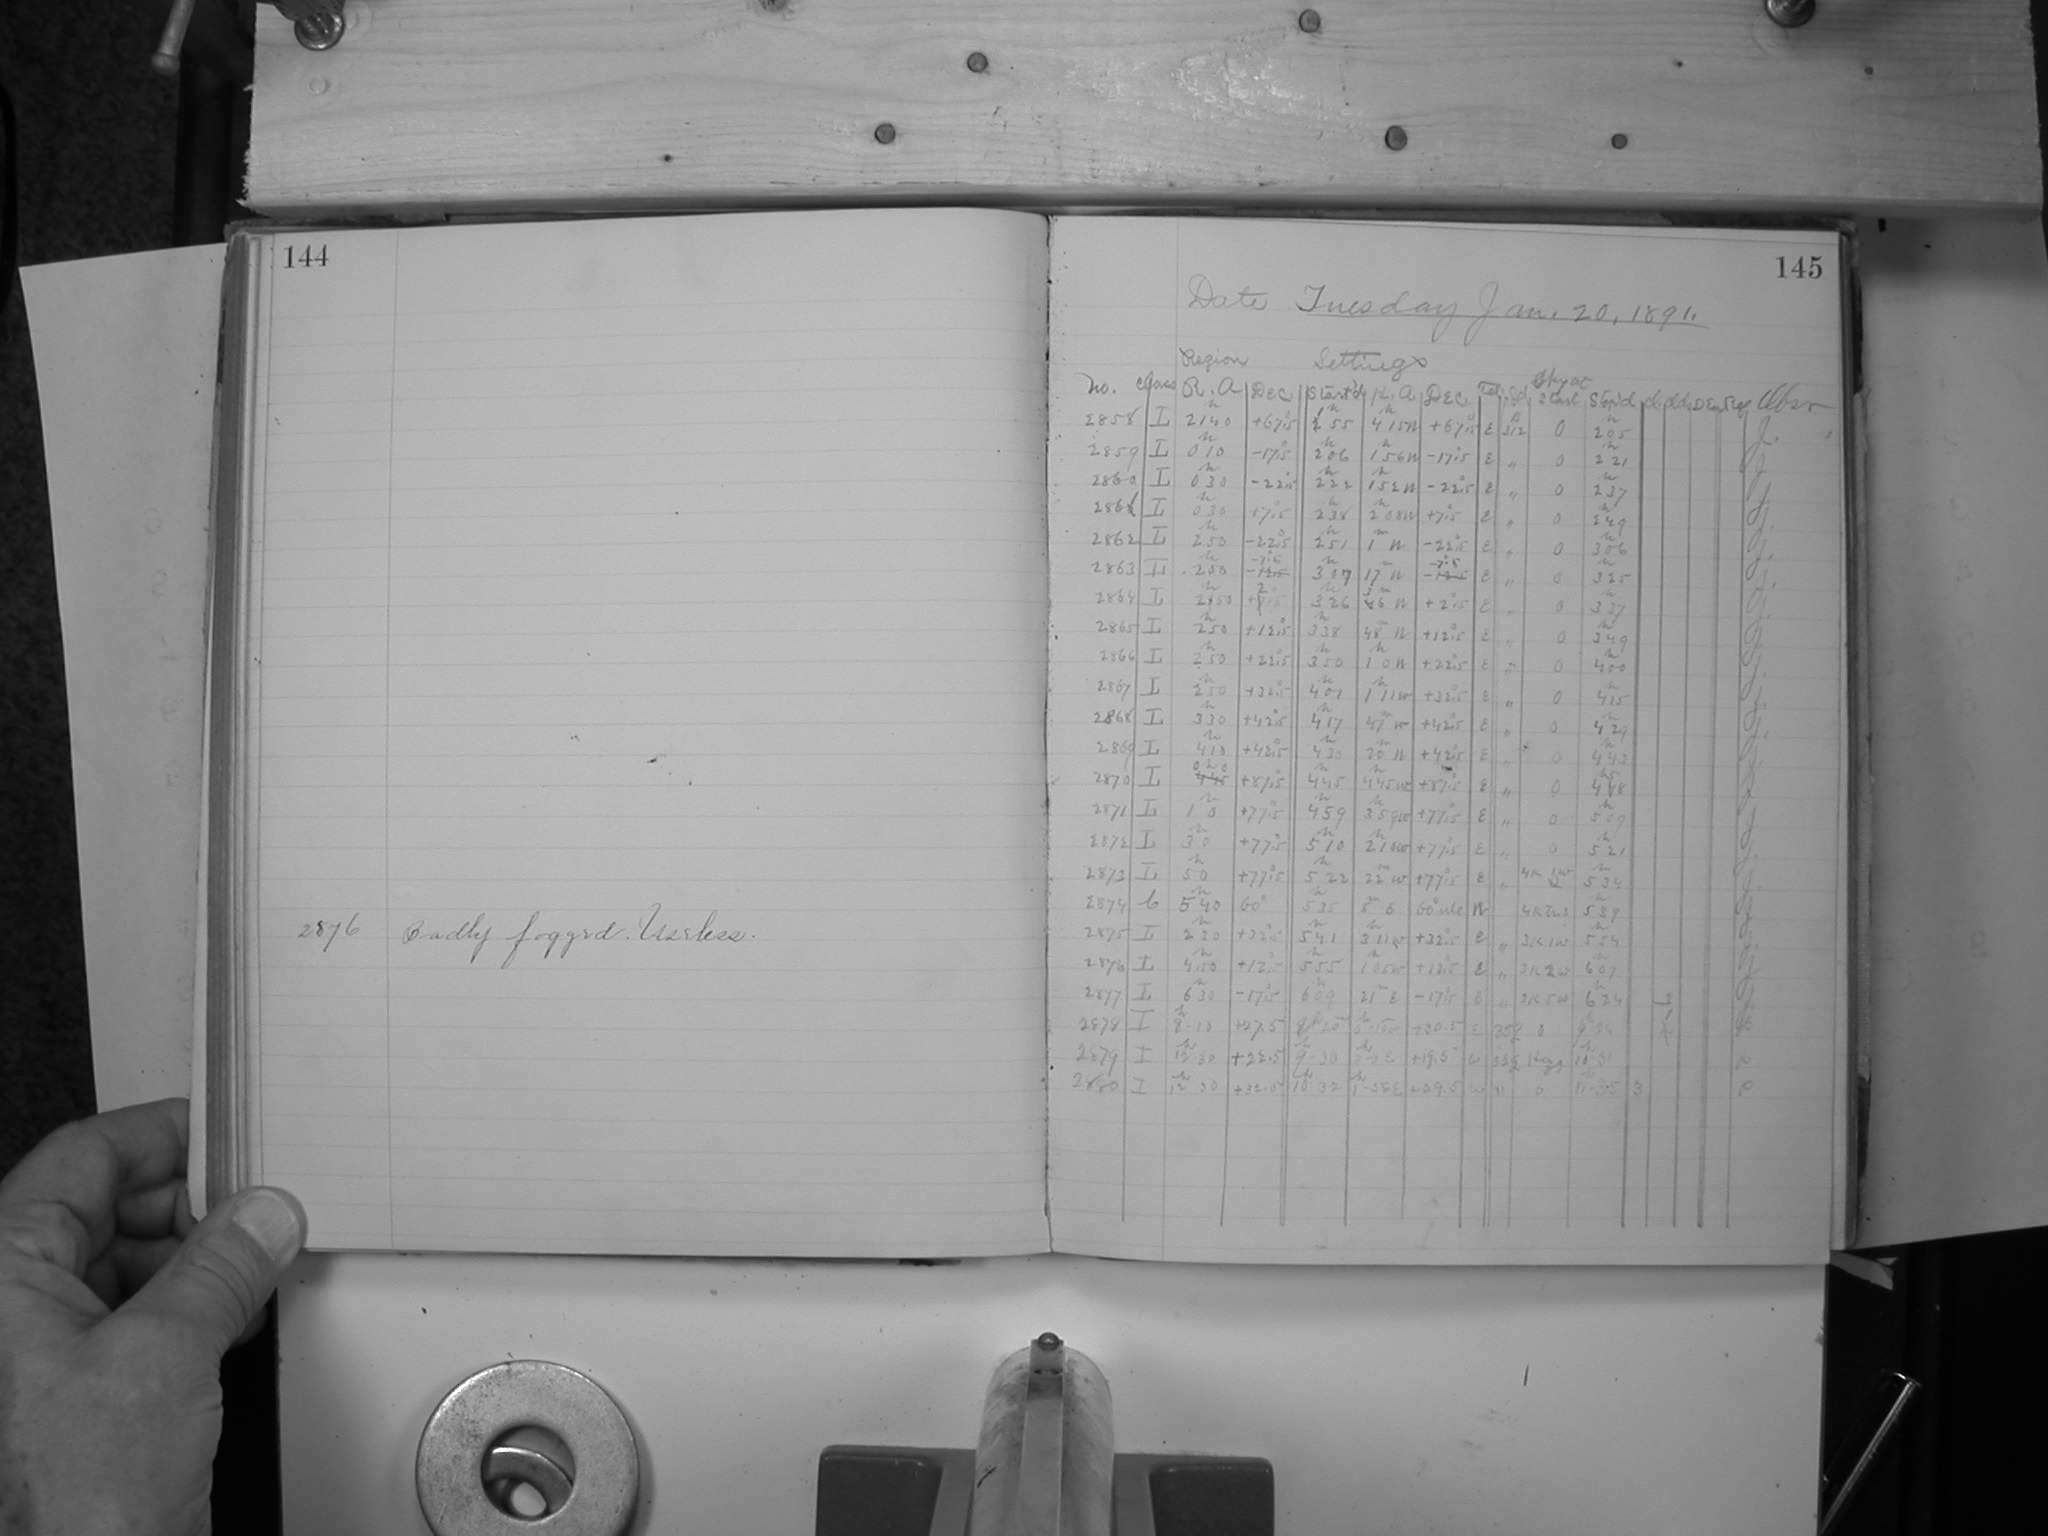 144
2876 Badly fogged. Useless.
145
Date Tuesday Jan. 20, 1891.
Region Settings
No. Class R.A Dec Start'd H.A Dec Tel. Sky at Start Stop'd Obsr
2858 L 21 40 +67.5 1 55 4 15 W +67.5 E 312 0 2 05 J.
2859 L 0 10 -17.5 2 06 1 56 W -17.5 E " 0 2 21 J.
2860 L 0 30 -22.5 2 22 1 52 W -22.5 E " 0 2 37 J.
2861 L 0 30 +7.5 2 38 2 08 W +7.5 E " 0 2 49 J.
2862 L 2 50 -22.5 2 51 1 W -22.5 E " 0 3 06 J.
2863 L 2 50 -7.5 3 07 17 W -7.5 E " 0 3 25 J.
2864 L 2 50 3 26 36 W +2.5 E " 0 3 37 J.
2865 L 2 50 +12.5 3 38 48 W +12.5 E " 0 3 49 J.
2866 L 2 50 +22.5 3 50 1 0 W +22.5 E " 0 4 00 J.
2867 L 2 50 +32.5 4 01 1 11 W +32.5 E " 0 4 15 J.
2868 L 3 30 +42.5 4 17 47 W +42.5 E " 0 4 29 J.
2869 L 4 10 +42.5 4 30 20 W +42.5 E " 0 4 43 J.
2870 L 0 0 +87.5 4 45 4 45 W +87.5 E " 0 J.
2871 L 1 0 +77.5 4 59 3 59 W +77.5 E " 0 5 09 J.
2872 L 3 0 +77.5 5 10 2 10 W +77.5 E " 0 5 21 J.
2873 L 5 0 +77.5 5 22 22 W +77.5 E " 5 34 J.
2874 C 5 40 60° 5 35 5 E N 5 39 J.
2875 L 2 30 +32.5 5 41 3 11 W +32.5 E " 3K1W 5 54 J.
2876 L 4 50 +12.5 5 55 1 05 W +12.5 E " 3K2W 6 07 J.
2877 L 6 30 -17.5 6 09 21 E -17.5 E " 3K5W 6 24 J.
2878 I +27.5 +30.5 E 0
2879 I 12 30 +22.5 9 30 +19.5 W 10 31
2880 I 12 30 +32.5 10 32 +29.5 W " 0 11 35 3